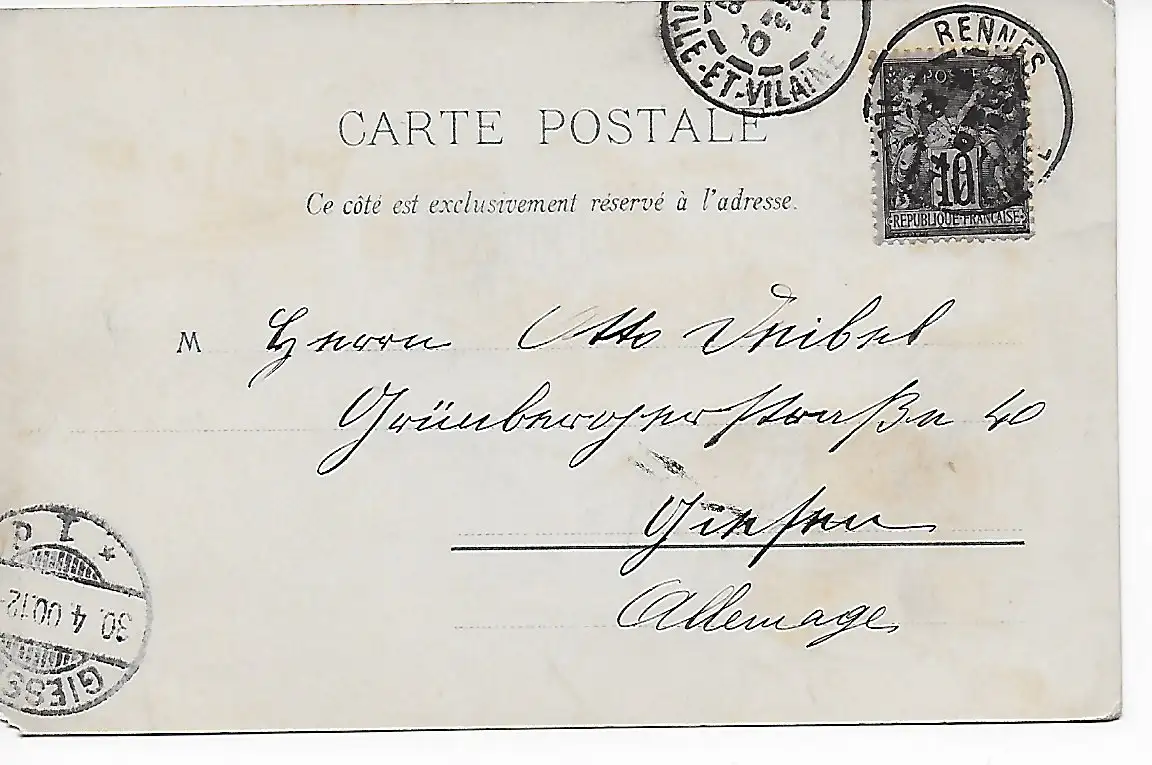 RENNES
ILLE-ET-VILAINE
POSTE
10
REPUBLIQUE FRANÇAISE
CARTE POSTALE
Ce côté est exclusivement réservé à l'adresse.
M Herrn Otto
Grünbergerstraße 40
Giesen
Allemage
GIESS
30.4.00.12-